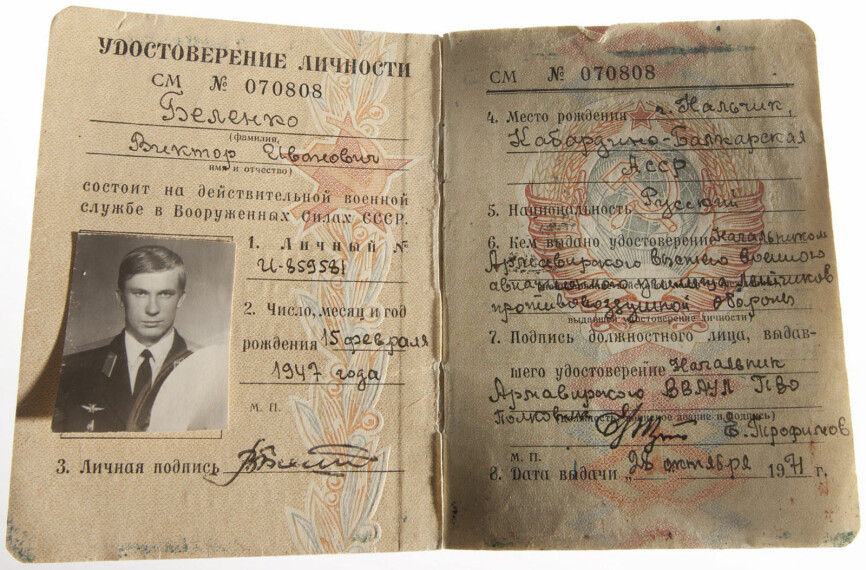 УДОСТОВЕРЕНИЕ ЛИЧНОСТИ
СМ № 070808
Беленко
(фамилия,
Виктор Иванович
имя и отчество)
состоит на действительной военной
службе в Вооруженных Силах СССР.
1. Личный №
И-859581
2. Число, месяц и год
рождения 15 февраля
1947 года
М. П.
3. Личная подпись
СМ № 070808
4. Место рождения г. Нальчик,
Кабардино-Балкарская
АССР
5. Национальность Русский
6. Кем выдано удостоверение Начальником
Армавирского высшего военного
авиационного училища лётчиков
противовоздушной обороны
выдавшей удостоверение личности)
7. Подпись должностного лица, выдав-
шего удостоверение Начальник
Армавирского ВВАУЛ ПВО
Полковник Е. Трофимов
(должность, воинское звание и подпись)
М. П.
8. Дата выдачи „28 октября 1971 г.